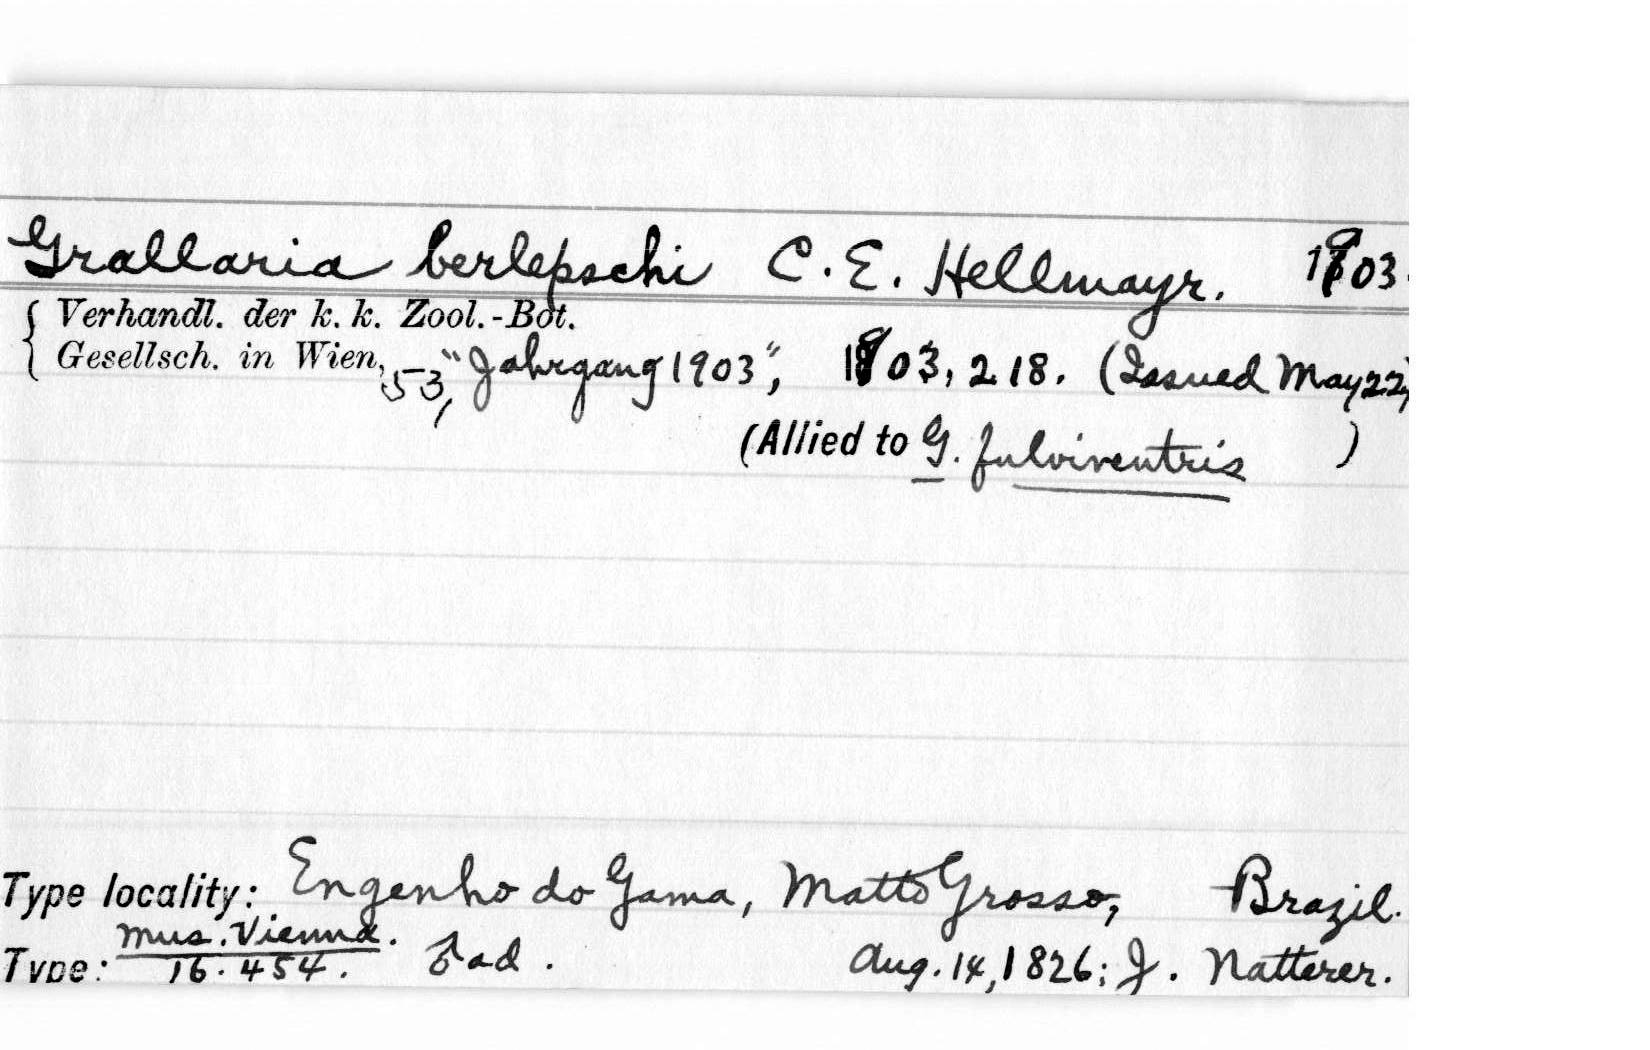 Grallaria berlepschi C. E. Hellmayr. 1903.
Verhandl. der k. k. Zool.-Bot.
Gesellsch. in Wien, 53, "Jahrgang 1903", 1903, 218. (Issued May 22,
(Allied to G. fulviventris )
Type locality: Engenho do Gama, Matto Grosso, Brazil.
Mus. Vienna.
Type: 16.454. ♂ ad. Aug. 14, 1826; J. Natterer.